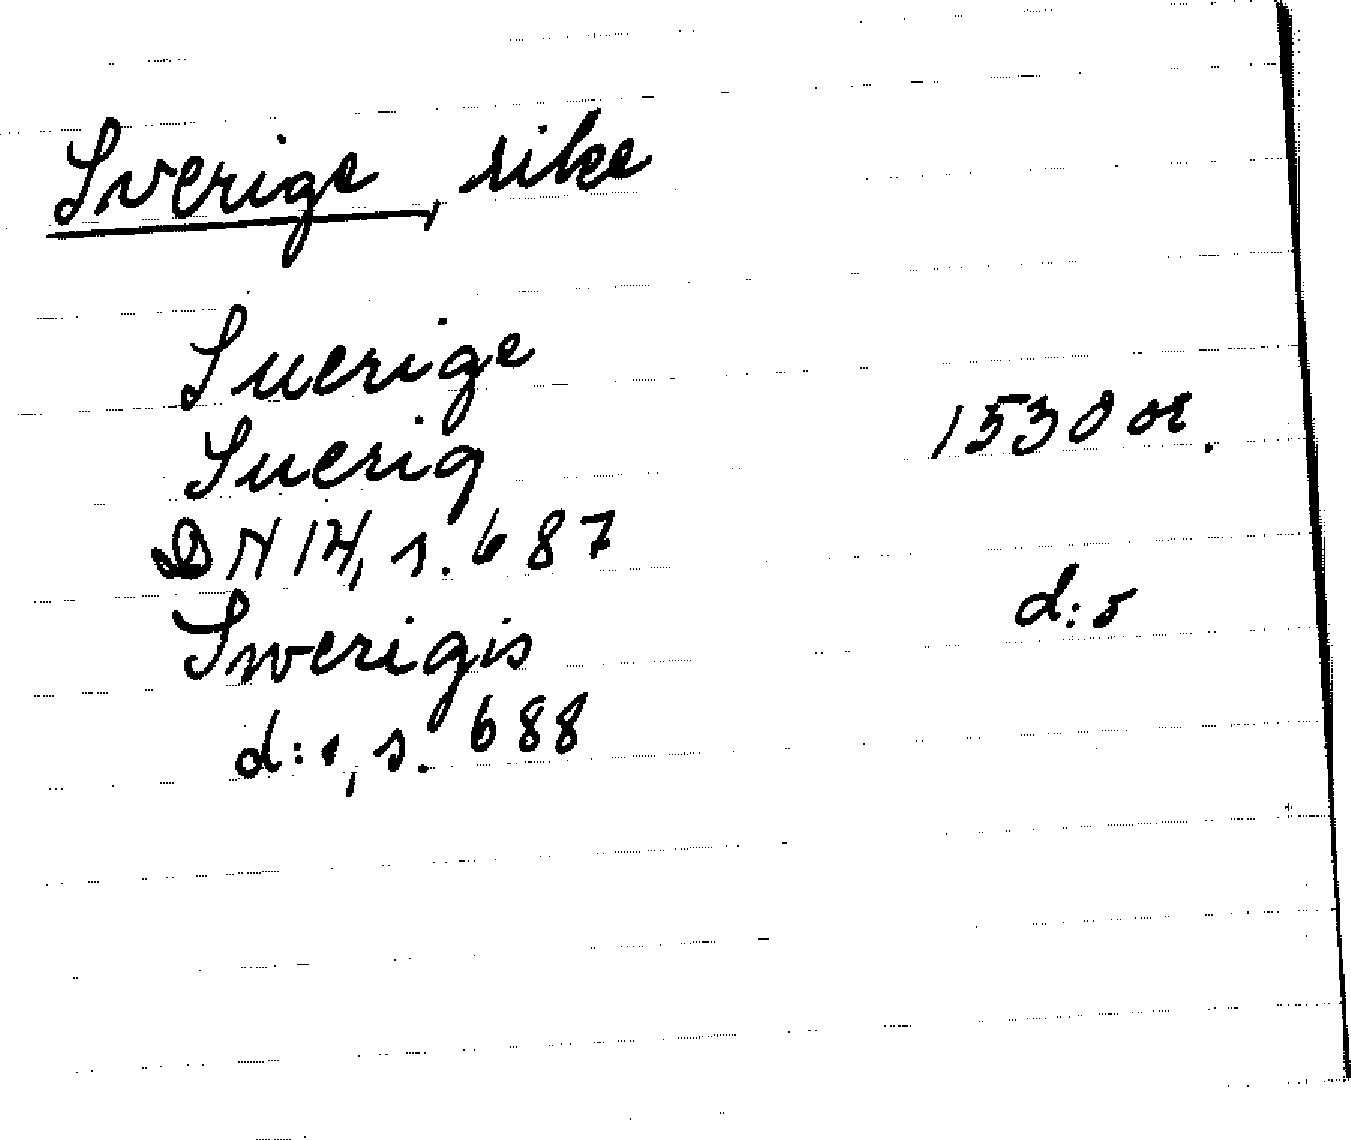 Sverige, rike
Suerige
Suerig 1530 or.
DN 14, s. 687
Swerigis d:o
d:o, s. 688